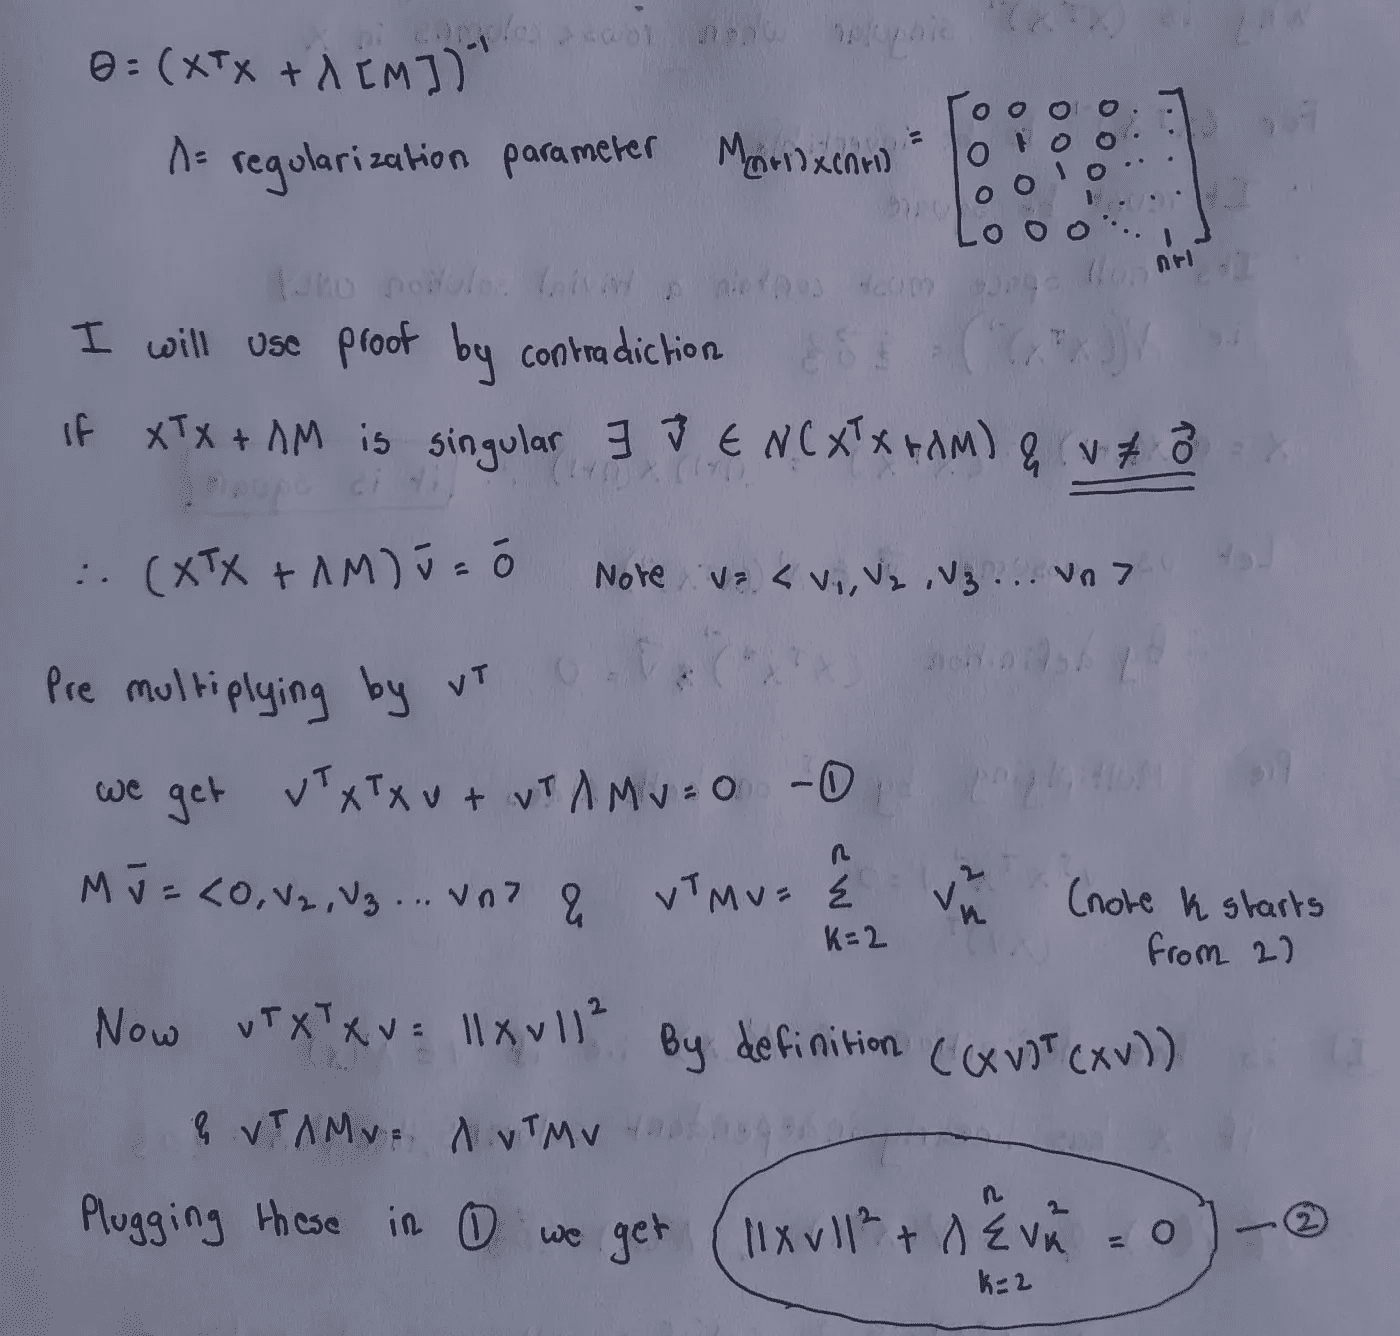 θ = (XᵀX + λ[M])⁻¹
λ = regularization parameter M₍ₙ₊₁₎ₓ₍ₙ₊₁₎ = [0 0 0 0 . .
0 1 0 0 . .
0 0 1 0 . . .
1 . . . .
0 0 0 . . . 1]
n+1
I will use proof by contradiction
if XᵀX + λM is singular ∃ v⃗ ∈ N(XᵀX + λM) & v ≠ 0⃗
∴ (XᵀX + λM) v̄ = ō Note v = < v₁, v₂, v₃ ... vn >
Pre multiplying by vᵀ
we get vᵀXᵀXv + vᵀλMv = 0 - ①
M v̄ = <0, v₂, v₃ ... vn> & vᵀMv = Σₖ₌₂ⁿ vₖ² (note k starts
from 2)
Now vᵀXᵀXv = ||Xv||² By definition ((Xv)ᵀ(Xv))
& vᵀλMv = λ vᵀMv
Plugging these in ① we get ||Xv||² + λ Σₖ₌₂ⁿ vₖ² = 0 - ②